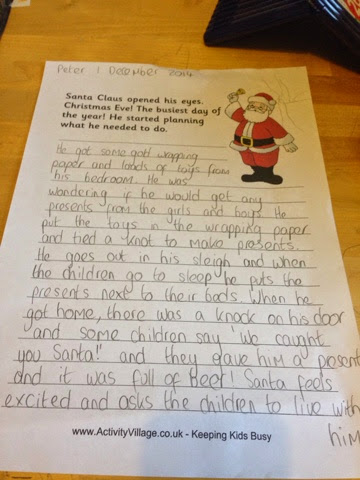 Peter 1 December 2014
Santa Claus opened his eyes.
Christmas Eve! The busiest day of
the year! He started planning
what he needed to do.
He got some gold wrapping
paper and loads of toys from
his bedroom. He was
wondering if he would get any
presents from the girls and boys. He
put the toys in the wrapping paper
and tied a knot to make presents.
He goes out in his sleigh and when
the children go to sleep he puts the
presents next to their beds. When he
got home, there was a knock on his door
and some children say 'We caught
you Santa!' and they gave him a present
and it was full of Beer! Santa feels
excited and asks the children to live with
him
www.ActivityVillage.co.uk - Keeping Kids Busy